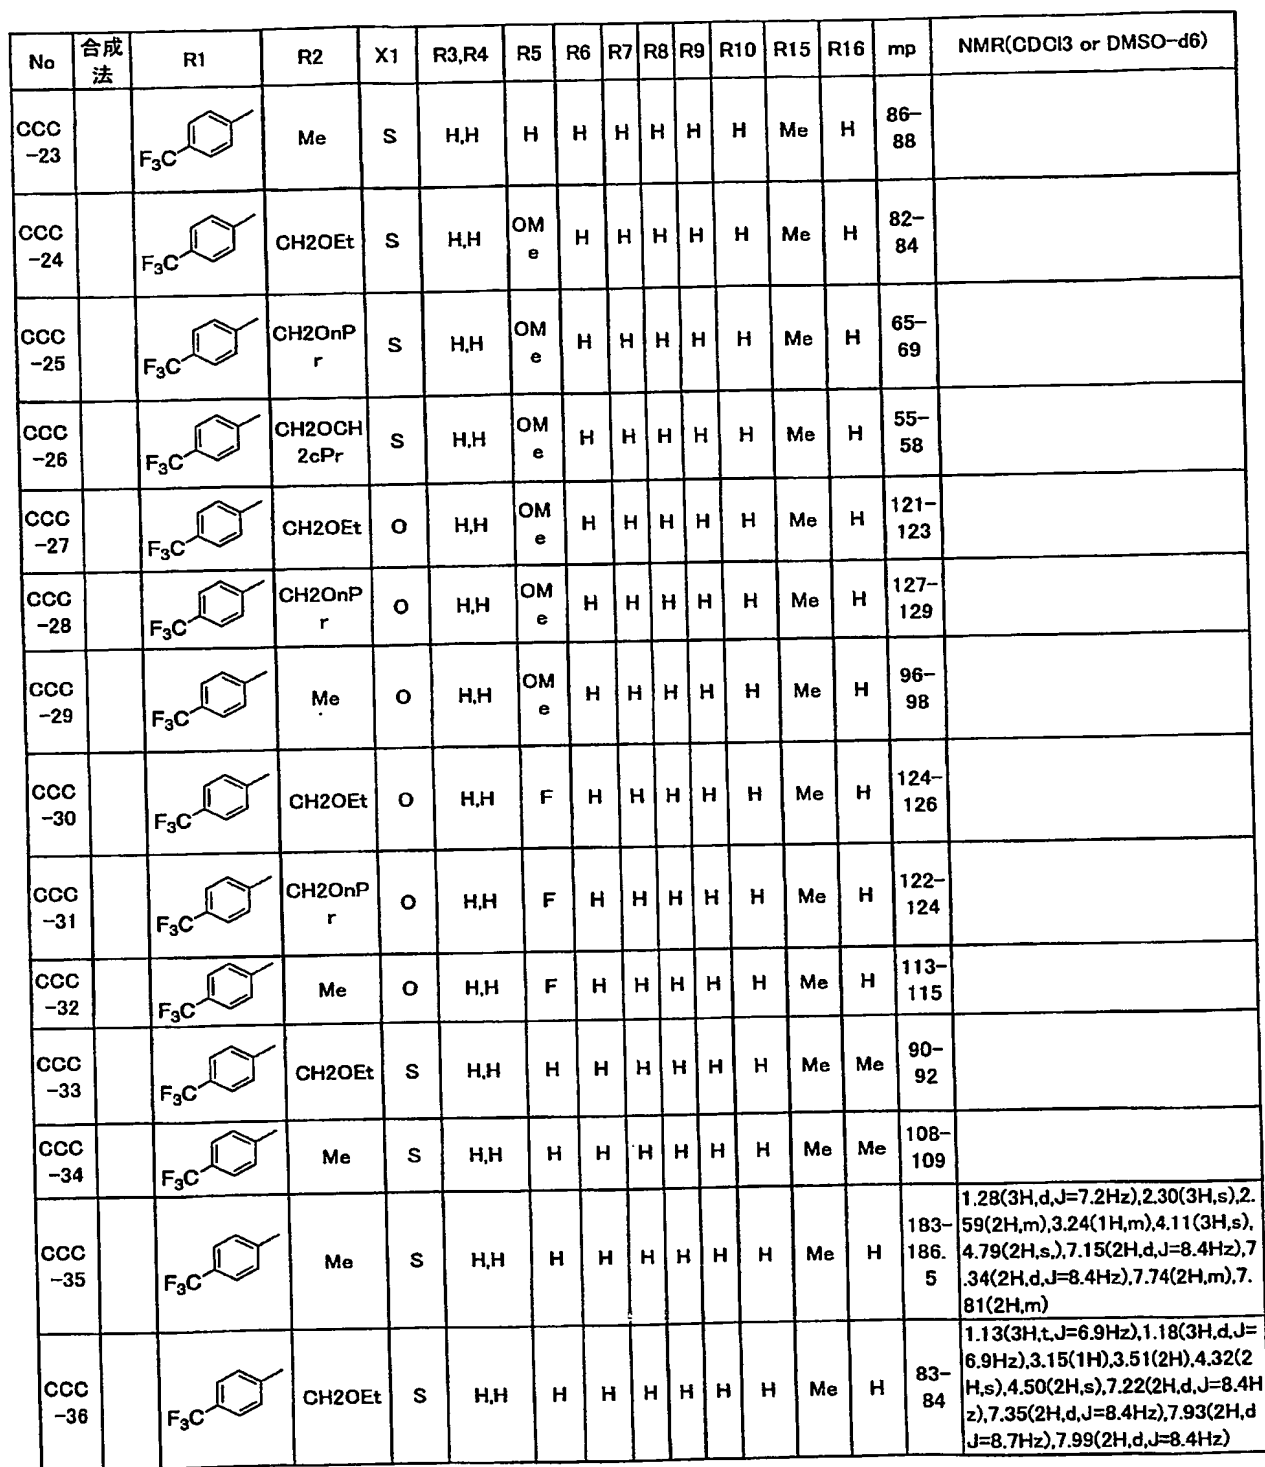 No 合成法 R1 R2 X1 R3,R4 R5 R6 R7 R8 R9 R10 R15 R16 mp NMR(CDCl3 or DMSO-d6)
CCC-23 F3C Me S H,H H H H H H H Me H 86-88
CCC-24 F3C CH2OEt S H,H OMe H H H H H Me H 82-84
CCC-25 F3C CH2OnPr S H,H OMe H H H H H Me H 65-69
CCC-26 F3C CH2OCH2cPr S H,H OMe H H H H H Me H 55-58
CCC-27 F3C CH2OEt O H,H OMe H H H H H Me H 121-123
CCC-28 F3C CH2OnPr O H,H OMe H H H H H Me H 127-129
CCC-29 F3C Me O H,H OMe H H H H H Me H 96-98
CCC-30 F3C CH2OEt O H,H F H H H H H Me H 124-126
CCC-31 F3C CH2OnPr O H,H F H H H H H Me H 122-124
CCC-32 F3C Me O H,H F H H H H H Me H 113-115
CCC-33 F3C CH2OEt S H,H H H H H H H Me Me 90-92
CCC-34 F3C Me S H,H H H H H H H Me Me 108-109
CCC-35 F3C Me S H,H H H H H H H Me H 183-186.5
1.28(3H,d,J=7.2Hz),2.30(3H,s),2.
59(2H,m),3.24(1H,m),4.11(3H,s),
4.79(2H,s,),7.15(2H,d,J=8.4Hz),7
.34(2H,d,J=8.4Hz),7.74(2H,m),7.
81(2H,m)
CCC-36 F3C CH2OEt S H,H H H H H H H Me H 83-84
1.13(3H,t,J=6.9Hz),1.18(3H,d,J=
6.9Hz),3.15(1H),3.51(2H),4.32(2
H,s),4.50(2H,s),7.22(2H,d,J=8.4H
z),7.35(2H,d,J=8.4Hz),7.93(2H,d
J=8.7Hz),7.99(2H,d,J=8.4Hz)